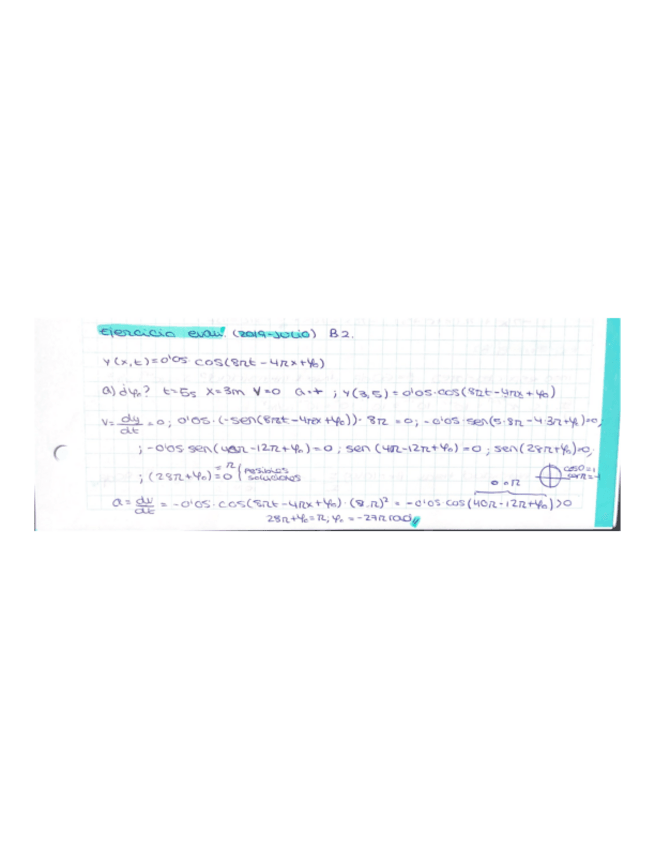 Ejercicio evau (2019-JULIO) B2.
y(x,t)=0'05 cos(8πt-4πx+φ₀)
a) ¿φ₀? t=5s x=3m v=0 a=+ ; y(3,5)=0'05·cos(8πt-4πx+φ₀)
v=dy/dt=0; 0'05·(-sen(8πt-4πx+φ₀))·8π=0; -0'05·sen(5·8π-4·3π+φ₀)=0;
; -0'05 sen(40π-12π+φ₀)=0; sen(40π-12π+φ₀)=0; sen(28π+φ₀)=0;
; (28π+φ₀)=π =0 (posibles soluciones cos0=1 cosπ=-1
0 o π
a=dv/dt=-0'05·cos(8πt-4πx+φ₀)·(8·π)²=-0'05 cos(40π-12π+φ₀)>0
28π+φ₀=π, φ₀=-27π rad